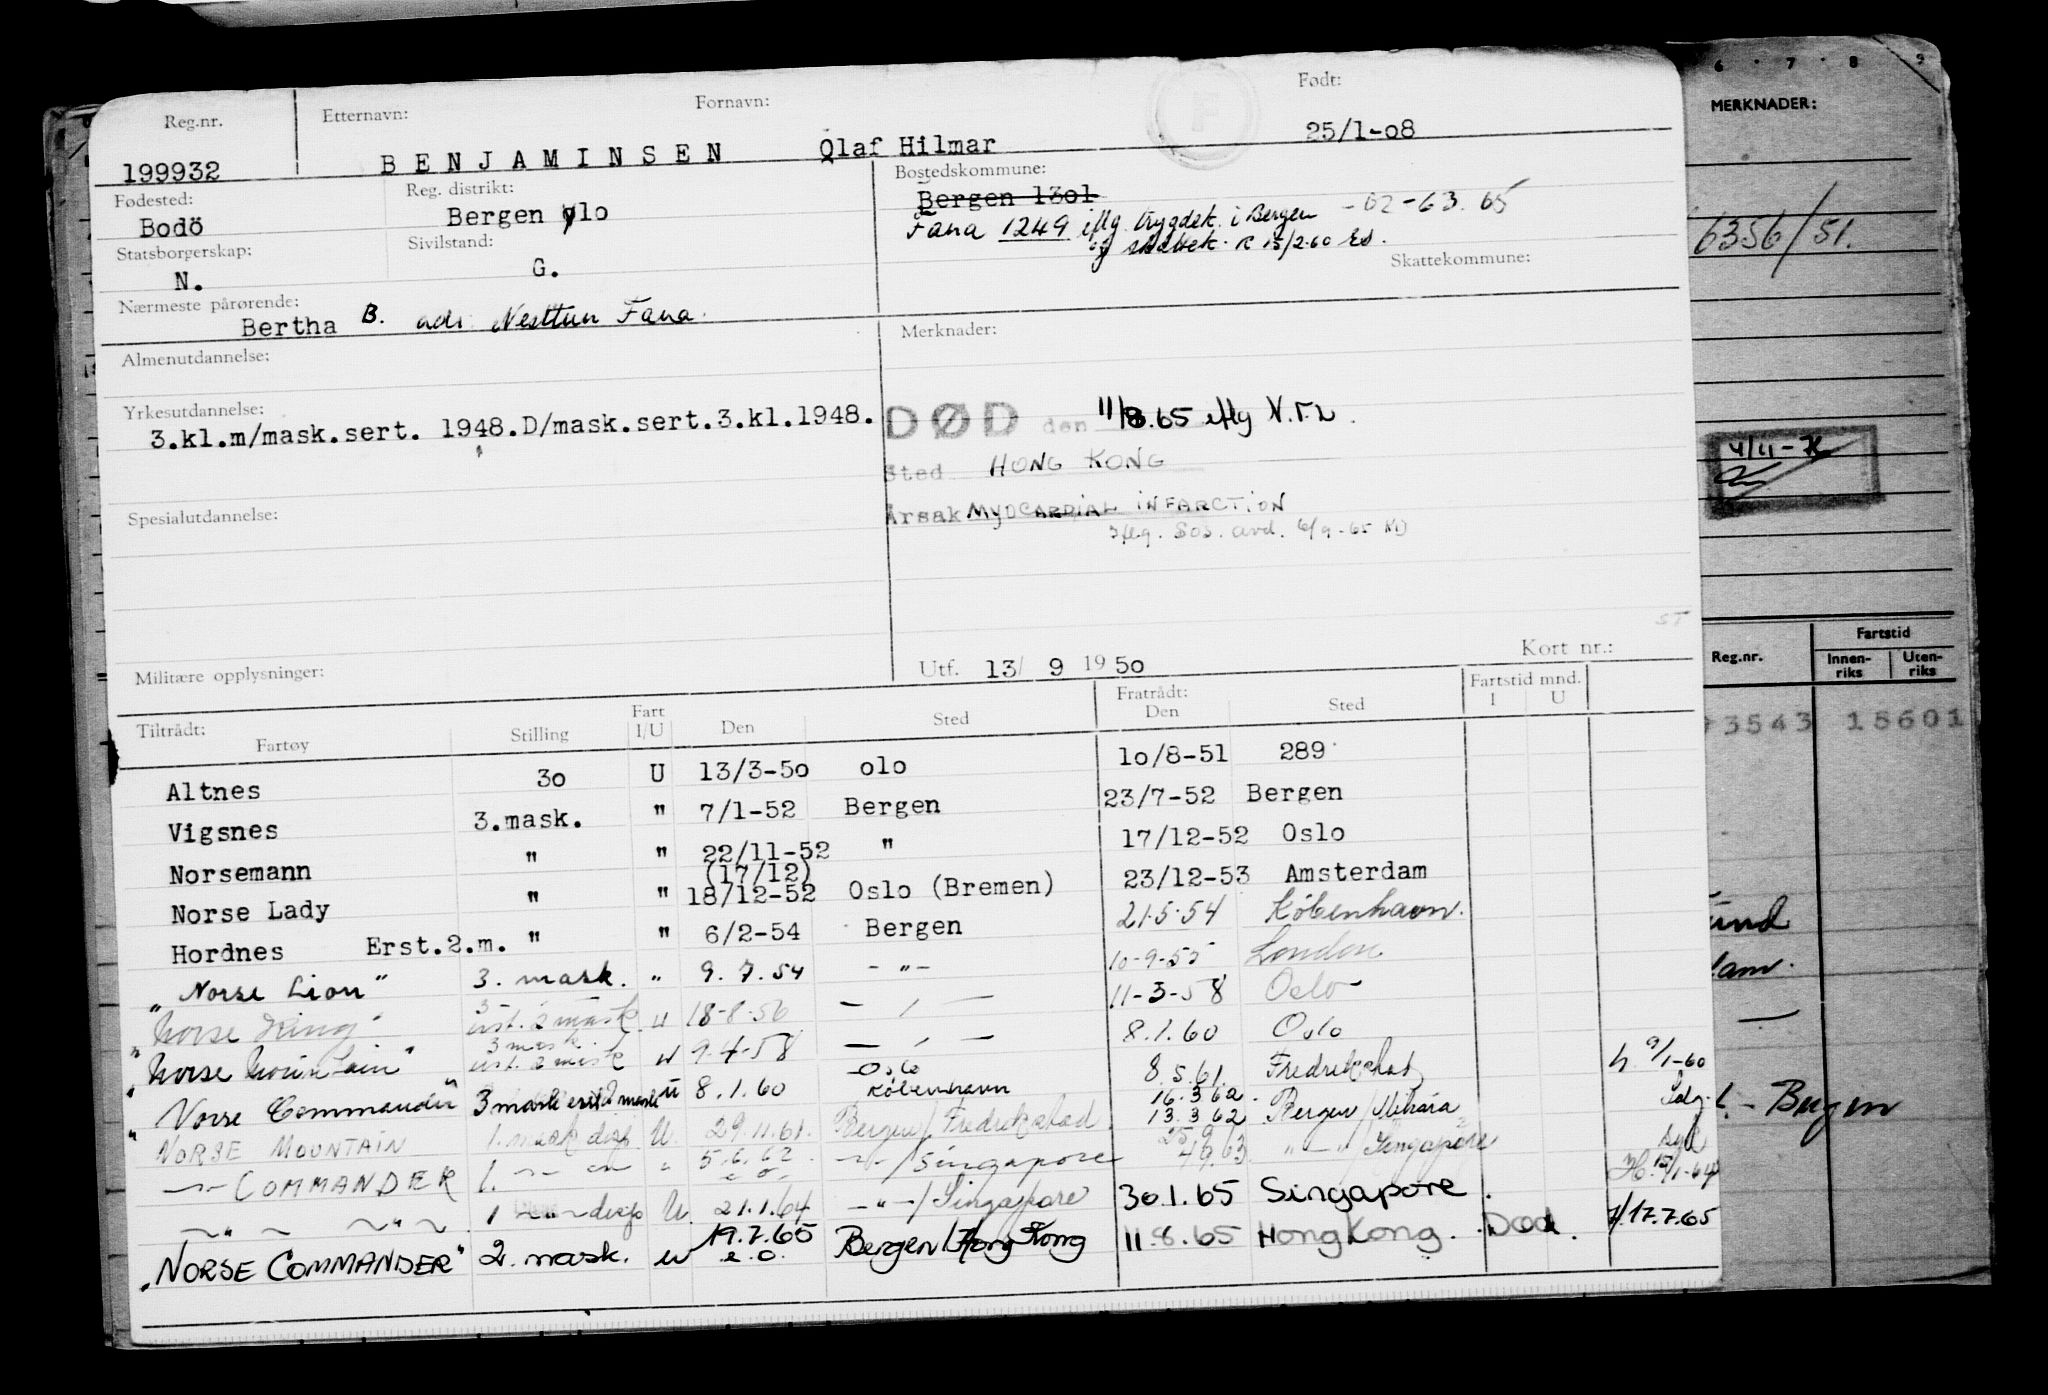 Reg.nr. Etternavn: Fornavn: Født:
199932 BENJAMINSEN Olaf Hilmar 25/1-08
Fødested: Reg. distrikt: Bostedskommune:
Bodö Bergen olo Bergen 1301
Fana 1249 iflg. trygdek. i Bergen -02-63.65
og skattek. R 15/2-60 Ed.
Statsborgerskap: Sivilstand: Skattekommune:
N. G.
Nærmeste pårørende:
Bertha B. adr. Nesttun Fana.
Almenutdannelse: Merknader:
Yrkesutdannelse:
3.kl.m/mask.sert. 1948.D/mask.sert.3.kl.1948.
DØD den 11/8.65 iflg N.T.L.
Sted HONG KONG
Årsak MYOCARDIAL INFARCTION
iflg. Sos. avd. 6/9-65
Spesialutdannelse:
ST
Militære opplysninger: Utf. 13/ 9 1950 Kort nr.:
Tiltrådt: Fratrådt: Fartstid mnd.
Fartøy Stilling Fart I/U Den Sted Den Sted I U
Altnes 3o U 13/3-50 olo 10/8-51 289
Vigsnes 3.mask. " 7/1-52 Bergen 23/7-52 Bergen
Norsemann " " 22/11-52 " 17/12-52 Oslo
(17/12)
Norse Lady " " 18/12-52 Oslo (Bremen) 23/12-53 Amsterdam
Hordnes Erst.2.m. " " 6/2-54 Bergen 21.5.54 København.
"Norse Lion" 3. mask. " 9.7.54 - " - 10-9-55 London
"Norse King" 3 erst. 2 mask U 18-8-56 - " - 11-3-58 Oslo
"Norse Mountain" 3 mask. erst. 2 mask U 9-4-58 - " - 8.1.60 Oslo
"Norse Commander" 3 mask erst 2 mask U 8.1.60 Oslo København 8.5.61. Fredrikstad h 9/1-60
NORSE MOUNTAIN 1. mask disp U. 29.11.61. Bergen/Fredrikstad 16.3.62. 13.3.62 Bergen/Mihara
-"- COMMANDER 1. -"- " 5.6.62 -"-/Singapore 4/9.63 " - "/Singapore
-"- -"- 1 -"- disp U. 21.1.64 -"-/Singapore 30.1.65 Singapore. H. 15/1-64
"NORSE COMMANDER" 2. mask. U 19.7.65 e.o. Bergen/Hong Kong 11.8.65 Hong Kong. Død. H. 17.7.65
6 7 8 9
MERKNADER:
6356/51.
4/11-
Reg.nr. Fartstid
Innen-riks Uten-riks
3543 18601
und
dam.
- Bergen